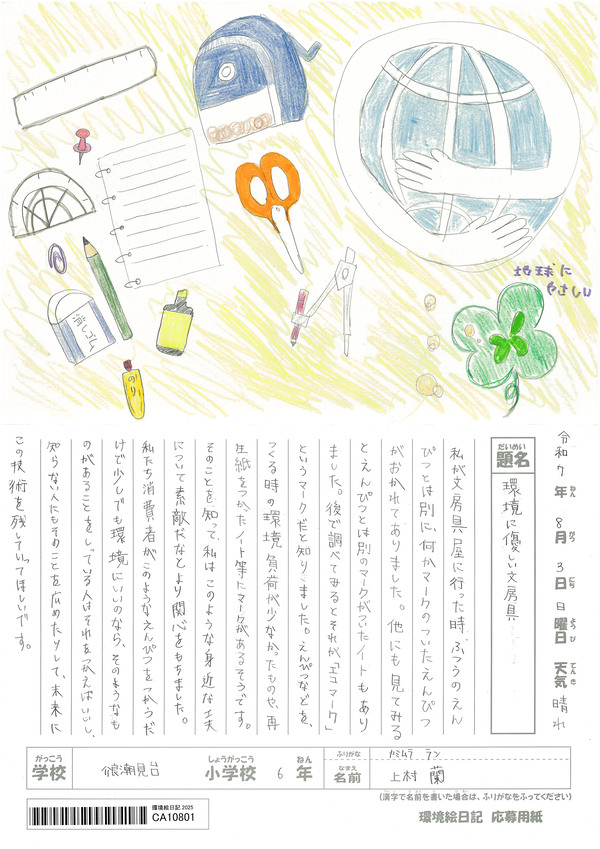 消しゴム
のり
地球に
やさしい
令和7年 8月 3日 日曜日 天気 晴れ
ねん がつ にち ようび てんき
だいめい
題名
環境に優しい文房具
私が文房具屋に行った時、ふつうのえん
ぴつとは別に、何かマークのついたえんぴつ
がおかれてありました。他にも見てみる
とえんぴつとは別のマークがついたノートもあり
ました。後で調べてみるとそれが「エコマーク」
というマークだと知りました。えんぴつなどを、
つくる時の環境負荷が少なかったものや、再
生紙をつかたノート等にマークがあるそうです。
そのことを知って、私はこのような身近な工夫
について素敵だなとより関心をもちました。
私たち消費者がこのようなえんぴつをつかうだ
けで少しでも環境にいいのなら、そのようなも
のがあることをしっている人はそれをつかえばいいし、
知らない人にもそのことを広めたりして、未来に
この技術を残していってほしいです。
がっこう
学校
浪潮見台
しょうがっこう
小学校
6
ねん
年
ふりがな
カミムラ ラン
なまえ
名前
上村 蘭
(漢字で名前を書いた場合は、ふりがなをふってください)
環境絵日記 2025
CA10801
環境絵日記 応募用紙